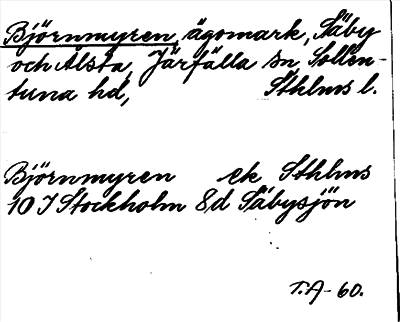 Björnmyren, ägomark, Säby
och Ålsta, Järfälla sn, Sollen-
tuna hd, Sthlms l.
Björnmyren ek Sthlms
10 I Stockholm 8d Säbysjön
T.A-60.